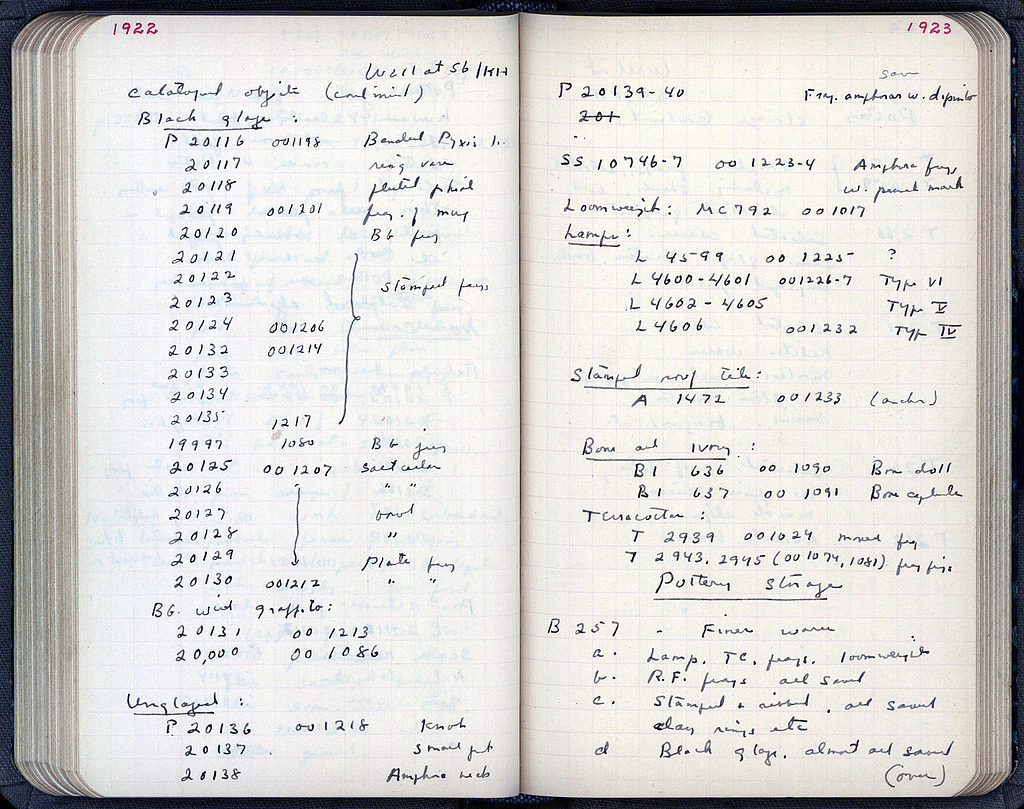 1922
Well at 56/KH
Catalogued objects (continued)
Black glaze :
P 20116 001198 Banded Pyxis
20117 ring ware
20118 fluted phial
20119 001201 frag. of mug
20120 BG frag
20121
20122
20123 Stamped frags
20124 001206
20132 001214
20133
20134
20135 1217
19997 1080 BG frag
20125 001207 Saltcellar
20126 " "
20127 bowl
20128 "
20129 Plate frag
20130 001212 " "
BG. with graffito:
20131 00 1213
20,000 00 1086
Unglazed :
P 20136 001218 Knob
20137 Small pot
20138 Amphora neck
1923
same
P 20139-40 Frag. amphoras w. dipinto
201
SS 10746-7 00 1223-4 Amphora frags
w. proud mark
Loomweight: MC 792 001017
Lamps:
L 4599 00 1225 ?
L 4600-4601 001226-7 Type VI
L 4602 - 4605 Type V
L 4606 001232 Type IV
Stamped roof tile:
A 1472 001233 (anchor)
Bone and Ivory :
BI 636 00 1090 Bone doll
BI 637 00 1091 Bone
Terracottas :
T 2939 001024 frag
T 2943, 2945 (001074, 1081) frag figs
Pottery Storage
B 257 - Finer ware
a. Lamp, TC, frags, loomweights
b. R.F. frags all saved
c. Stamped & incised, all saved
clay rings etc
d Black glaze, almost all saved
(over)